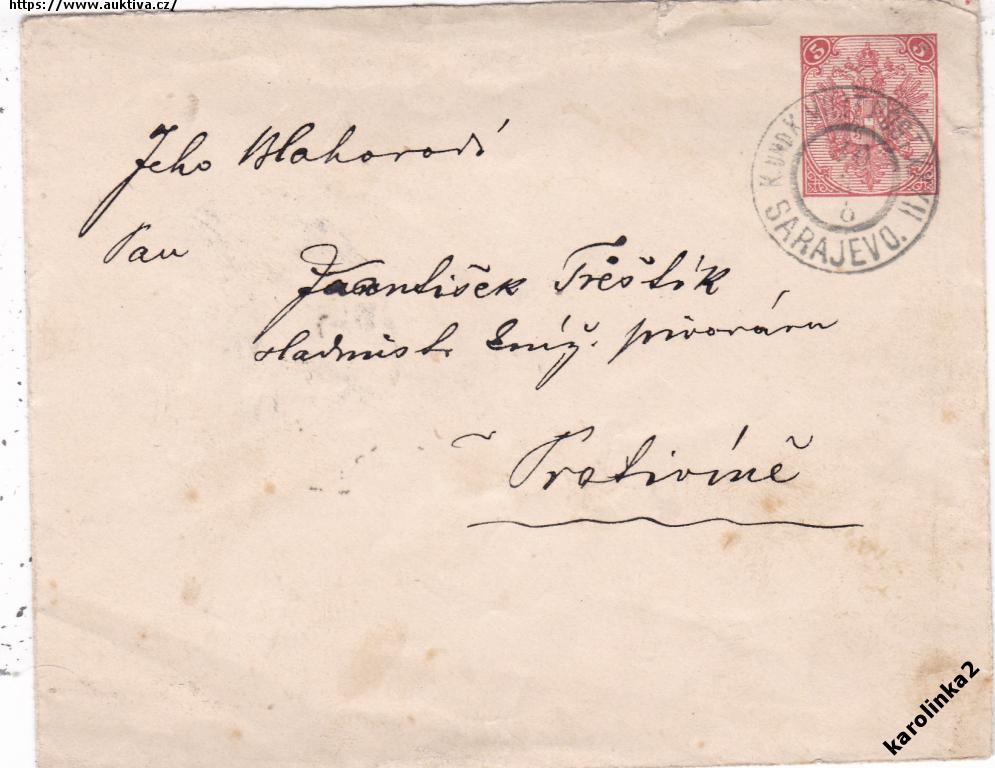 https://www.auktiva.cz/
5 5
K. UND K. MILIT. POST XXII
10
6
SARAJEVO.
Jeho Blahorodí
Pan
František Třeštík
sladmistr kníž. pivováru
v Protivíně
karolinka2